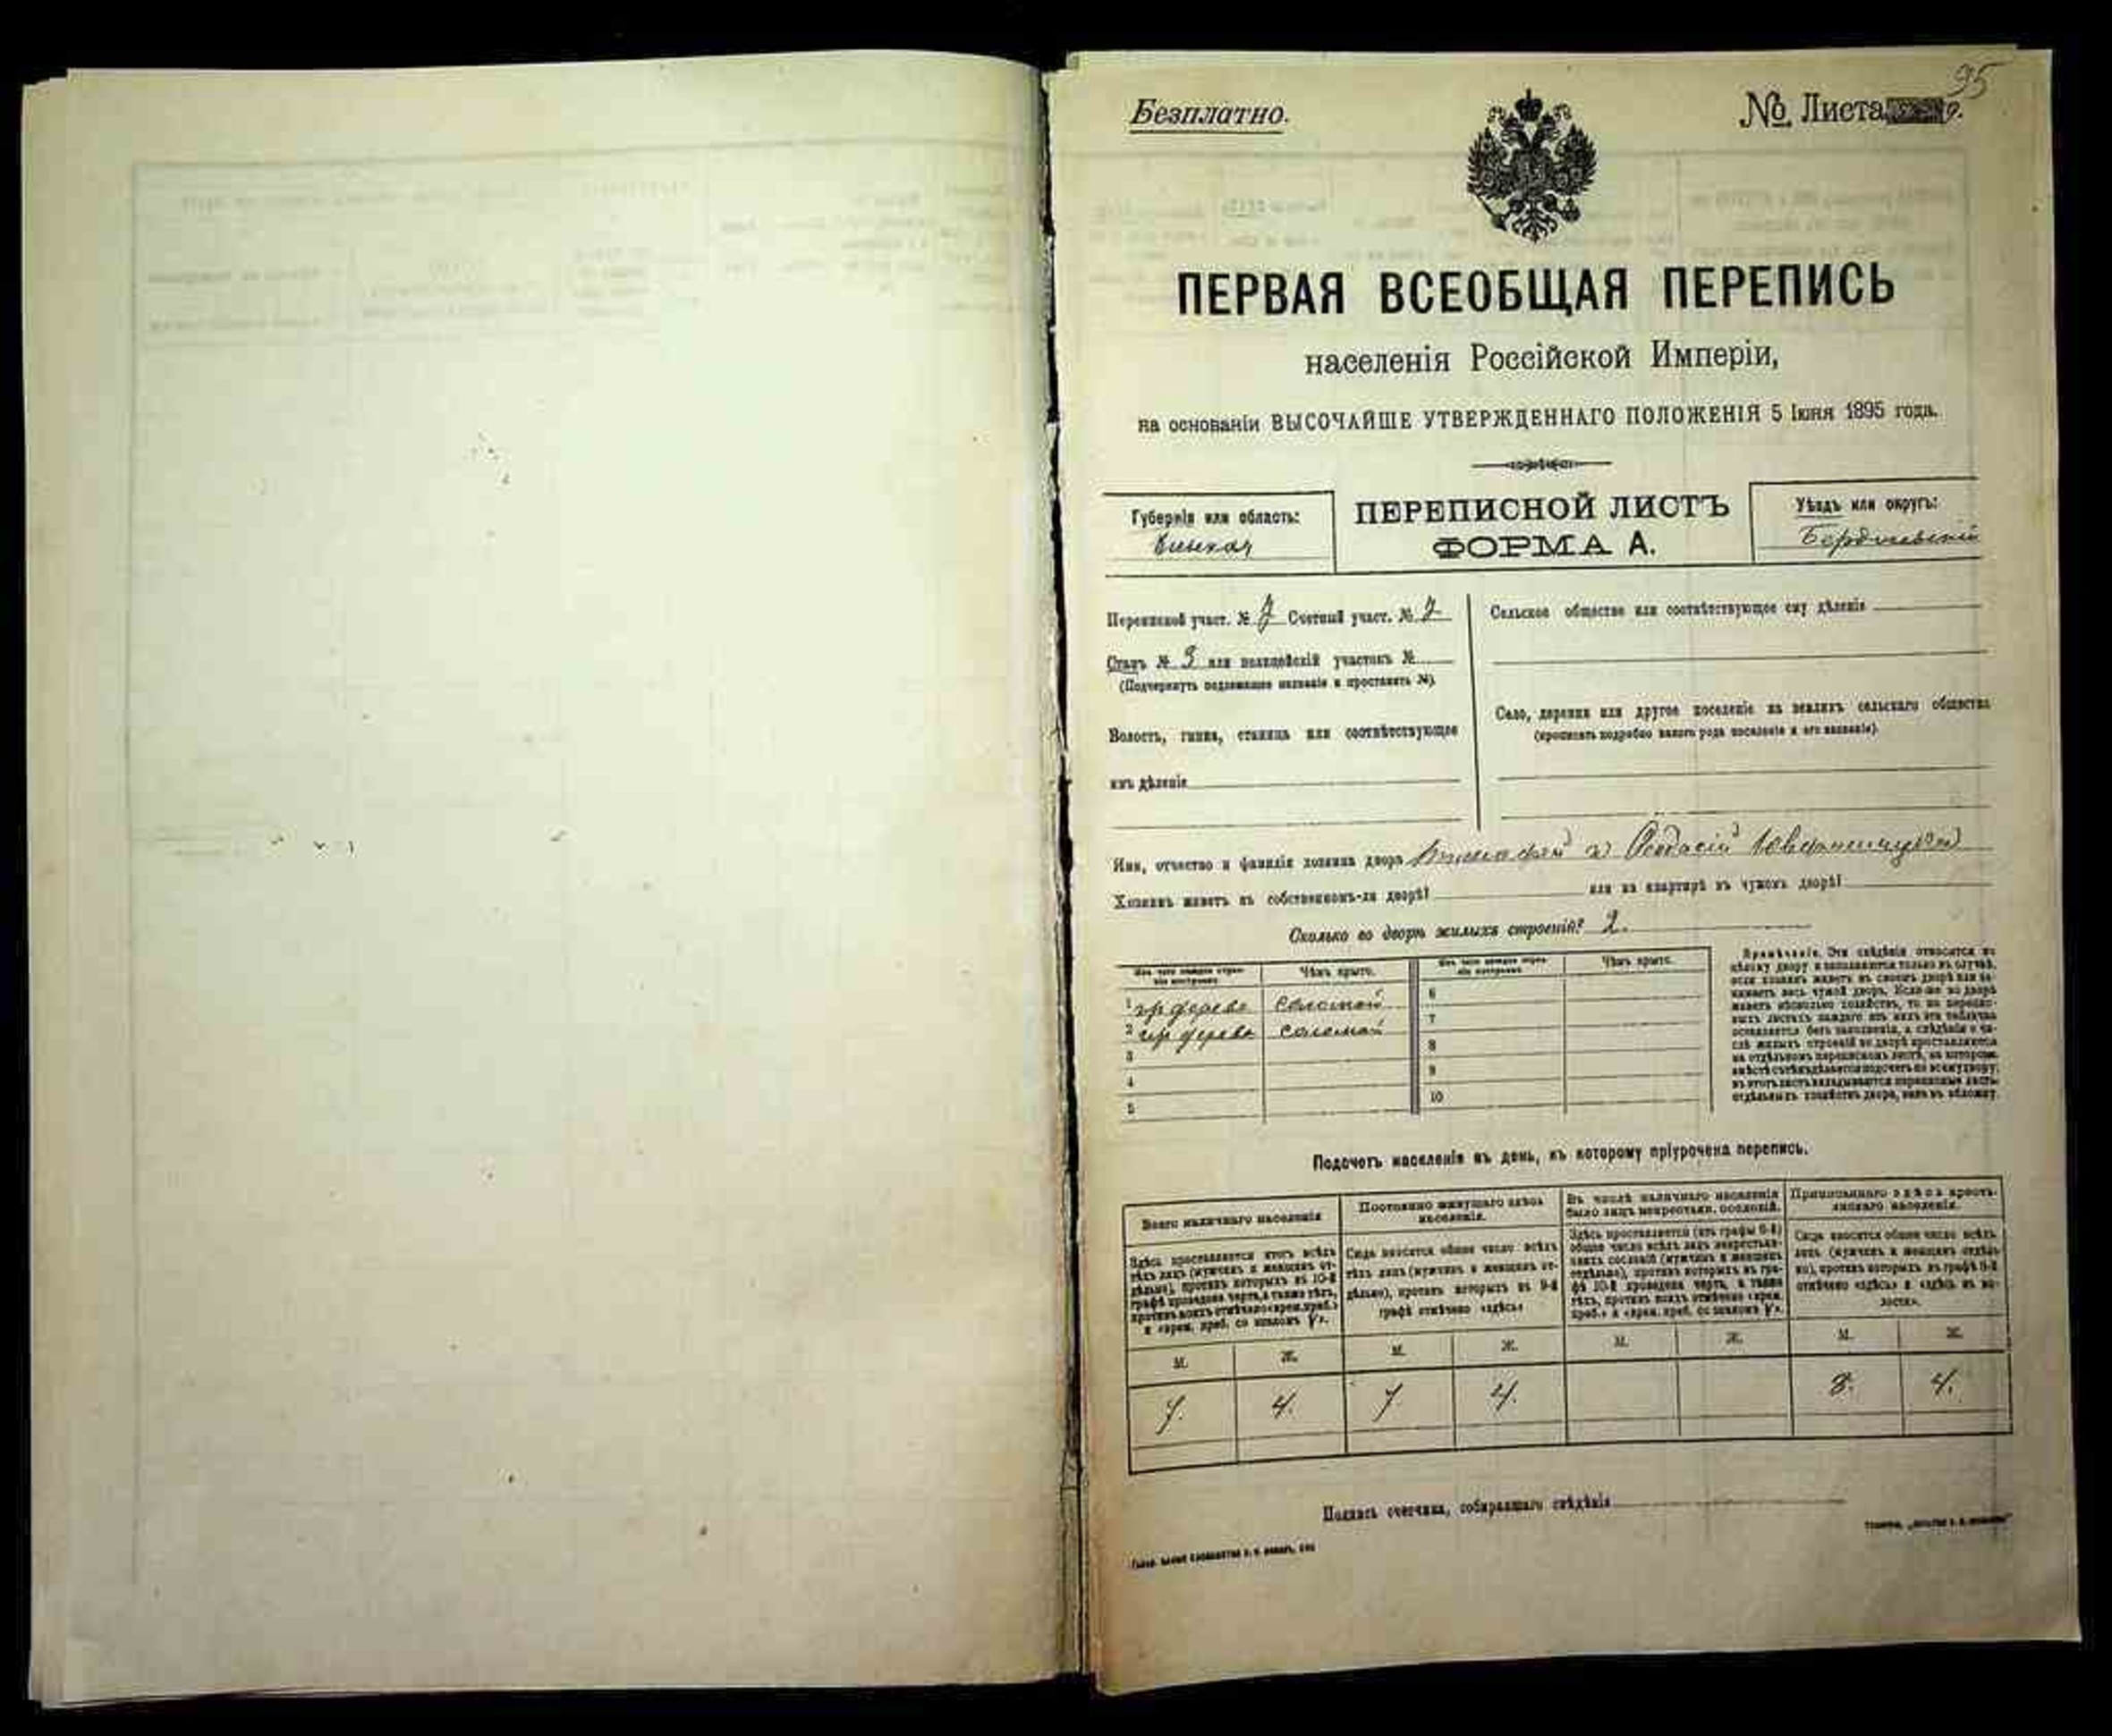 95
Безплатно.
№ Листа 9.
ПЕРВАЯ ВСЕОБЩАЯ ПЕРЕПИСЬ
населенія Россійской Имперіи,
на основаніи ВЫСОЧАЙШЕ УТВЕРЖДЕННАГО ПОЛОЖЕНІЯ 5 Іюня 1895 года.
Губернія или область:
Кіевская
ПЕРЕПИСНОЙ ЛИСТЪ
ФОРМА А.
Уѣздъ или округъ:
Бердичевскій
Переписной участ. № 7 Счетный участ. № 7
Станъ № 3 или полицейскій участокъ №
(Подчеркнуть подлежащее названіе и проставить №).
Волость, гмина, станица или соотвѣтствующее
имъ дѣленіе
Сельское общество или соотвѣтствующее ему дѣленіе
Село, деревня или другое поселеніе на земляхъ сельскаго общества
(прописать подробно какого рода поселеніе и его названіе).
Имя, отчество и фамилія хозяина двора
Хозяинъ живетъ въ собственномъ-ли дворѣ? или на квартирѣ въ чужомъ дворѣ?
Сколько во дворѣ жилыхъ строеній? 2.
Изъ чего каждое строеніе построено. Чѣмъ крыто. Изъ чего каждое строеніе построено. Чѣмъ крыто.
1 дерево соломой 6
2 дерево соломой 7
3 8
4 9
5 10
Примѣчаніе. Эти свѣдѣнія относятся къ
цѣлому двору и заполняются только въ случаѣ,
если хозяинъ живетъ въ своемъ дворѣ или за-
нимаетъ весь чужой дворъ. Если-же во дворѣ
живетъ нѣсколько хозяйствъ, то на перепис-
ныхъ листахъ каждаго изъ нихъ эта табличка
оставляется безъ заполненія, а свѣдѣнія о чи-
слѣ жилыхъ строеній во дворѣ проставляются
на отдѣльномъ переписномъ листѣ, на которомъ
вмѣстѣ съ тѣмъ дѣлается подсчетъ по всему двору;
въ этотъ листъ вкладываются переписные листы
отдѣльныхъ хозяйствъ двора, какъ въ обложку.
Подсчетъ населенія въ день, къ которому пріурочена перепись.
Всего наличнаго населенія
Здѣсь проставляется итогъ всѣхъ
тѣхъ лицъ (мужчинъ и женщинъ от-
дѣльно), противъ которыхъ въ 10-й
графѣ проведена черта, а также тѣхъ,
противъ коихъ отмѣчено «врем. преб.»
и «врем. преб. со знакомъ V».
Постоянно живущаго здѣсь
населенія.
Сюда вносится общее число всѣхъ
тѣхъ лицъ (мужчинъ и женщинъ от-
дѣльно), противъ которыхъ въ 9-й
графѣ отмѣчено «здѣсь»
Въ числѣ наличнаго населенія
было лицъ некрестьян. сословій.
Здѣсь проставляется (изъ графы 6-й)
общее число всѣхъ лицъ некрестьян-
скихъ сословій (мужчинъ и женщинъ
отдѣльно), противъ которыхъ въ гра-
фѣ 10-й проведена черта, а также
тѣхъ, противъ коихъ отмѣчено «врем.
преб.» и «врем. преб. со знакомъ V».
Приписаннаго здѣсь кресть-
янскаго населенія.
Сюда вносится общее число всѣхъ
лицъ (мужчинъ и женщинъ отдѣль-
но), противъ которыхъ въ графѣ 8-й
отмѣчено «здѣсь» и «здѣсь въ во-
лости».
М. Ж. М. Ж. М. Ж. М. Ж.
7. 4. 7 4. 8. 4.
Подпись счетчика, собиравшаго свѣдѣнія